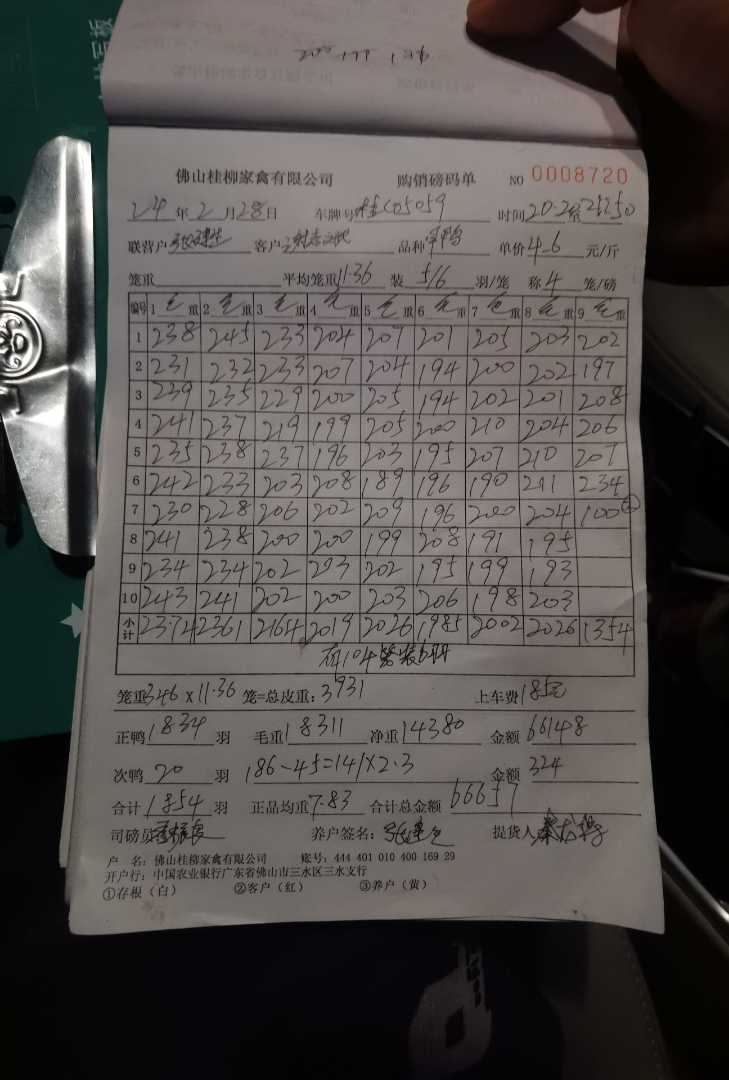 200 199 196
佛山桂柳家禽有限公司 购销磅码单 NO 0008720
24 年 2 月 28 日 车牌号 桂C05059 时间 20-2
联营户 客户 品种 单价 4.6 元/斤
笼重 平均笼重 11.36 装 5/6 羽/笼 称 4 笼/磅
编号 1 毛重 2 毛重 3 毛重 4 毛重 5 毛重 6 毛重 7 毛重 8 毛重 9 毛重
1 238 245 233 204 207 201 205 203 202
2 231 232 233 207 204 194 200 202 197
3 239 235 229 200 205 194 202 201 208
4 241 237 219 199 205 200 210 204 206
5 235 238 237 196 203 195 207 210 207
6 242 233 203 208 189 196 190 211 234
7 230 228 206 202 209 196 200 204 100②
8 241 238 200 200 199 208 191 195
9 234 234 202 203 202 195 199 193
10 243 241 202 200 203 206 198 203
小计 2374 2361 2164 2019 2026 1985 2002 2026 1354
有104笼装6羽
笼重 346 x 11.36 笼=总皮重: 3931 上车费 185元
正鸭 1834 羽 毛重 18311 净重 14380 金额 66148
次鸭 20 羽 186-45=141x2.3 金额 324
合计 1854 羽 正品均重 7.83 合计总金额 66657
司磅员 养户签名: 提货人
户 名: 佛山桂柳家禽有限公司 账号: 444 401 010 400 169 29
开户行: 中国农业银行广东省佛山市三水区三水支行
①存根（白） ②客户（红） ③养户（黄）